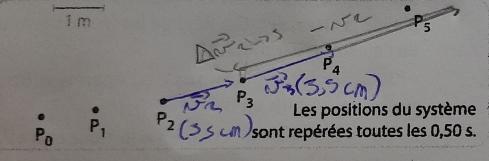 1 m
Δv⃗2→3
- v2
P5
P4
P3
v⃗3 (5,5 cm)
v⃗2
P2
(5,5 cm)
P1
P0
Les positions du système
sont repérées toutes les 0,50 s.